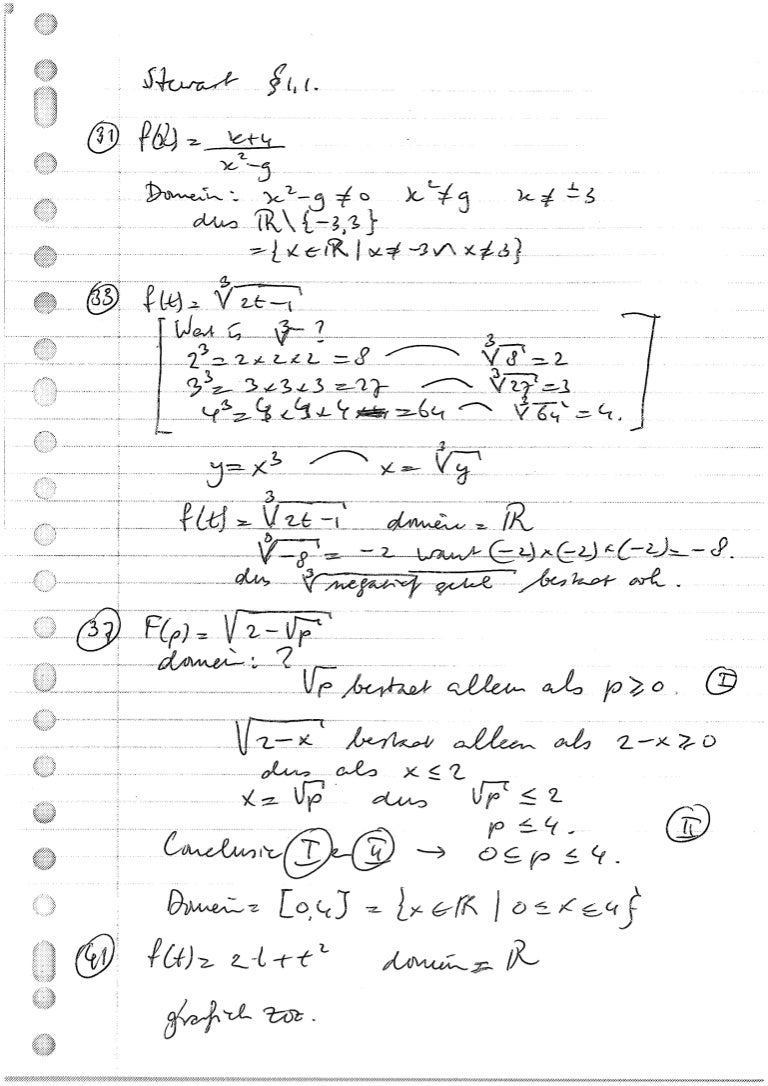 Stewart §1.1.
(31) f(x) = x+4 / x²-9
Domein: x²-9 ≠ 0 x² ≠ 9 x ≠ ±3
dus ℝ\{-3,3}
= {x ∈ ℝ | x ≠ -3 ∧ x ≠ 3}
(33) f(t) = ∛(2t-1)
[Wat is ∛ ?
2³ = 2×2×2 = 8 ∛8 = 2
3³ = 3×3×3 = 27 ∛27 = 3
4³ = 4×4×4 = 64 ∛64 = 4.]
y = x³ x = ∛y
f(t) = ∛(2t-1) domein = ℝ
∛-8 = -2 want (-2)×(-2)×(-2) = -8.
dus ∛negatief getal bestaat ook.
(37) F(p) = √(2-√p)
domein: ?
√p bestaat alleen als p ≥ 0. (I)
√(2-x) bestaat alleen als 2-x ≥ 0
dus als x ≤ 2
x = √p dus √p ≤ 2
p ≤ 4. (II)
Conclusie (I) en (II) → 0 ≤ p ≤ 4.
Domein = [0,4] = {x ∈ ℝ | 0 ≤ x ≤ 4}
(41) f(t) = 2t + t² domein = ℝ
grafiek zoz.